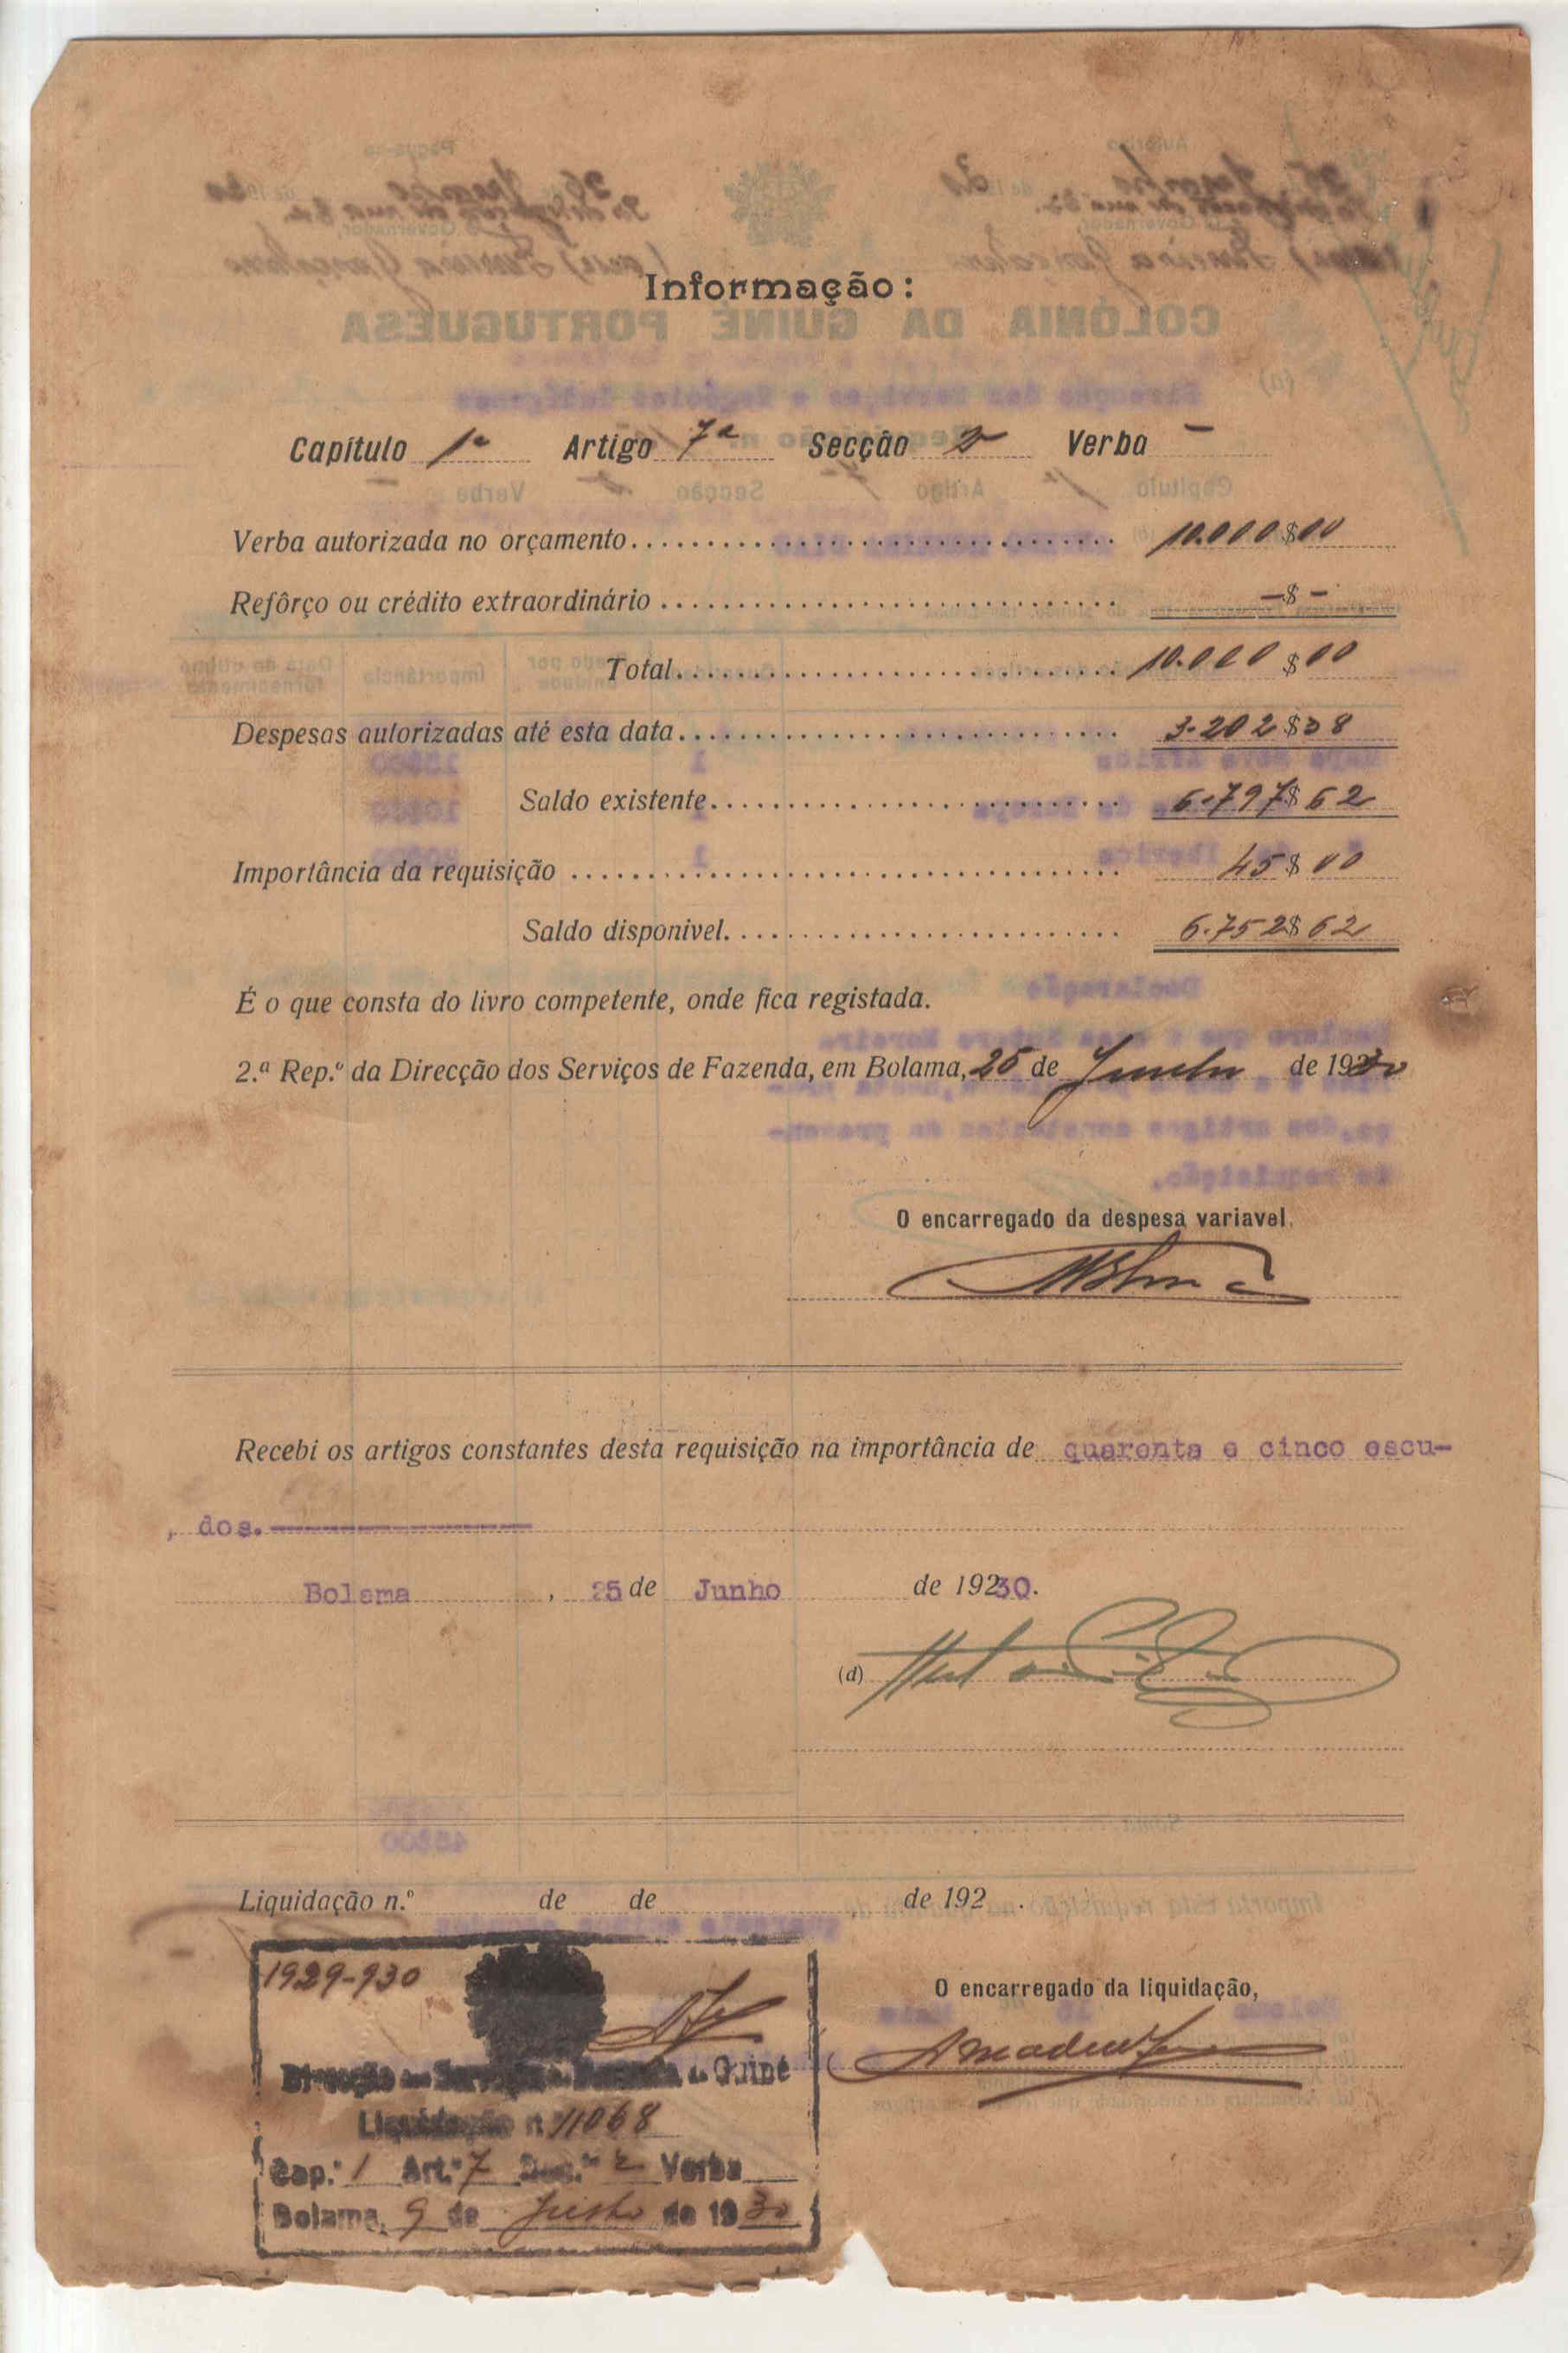 Informação:
Capítulo 1º Artigo 7º Secção 2ª Verba —
Verba autorizada no orçamento 10.000$00
Refôrço ou crédito extraordinário —$—
Total 10.000$00
Despesas autorizadas até esta data 3.202$38
Saldo existente 6.797$62
Importância da requisição 45$00
Saldo disponivel 6.752$62
É o que consta do livro competente, onde fica registada.
2.ª Rep.º da Direcção dos Serviços de Fazenda, em Bolama, 25 de Junho de 1930
O encarregado da despesa variavel,
Recebi os artigos constantes desta requisição na importância de quarenta e cinco escu-
dos.
Bolama, 25 de Junho de 19230.
(d)
Liquidação n.º de de de 192 .
1929-930
O encarregado da liquidação,
Direcção dos Serviços de Fazenda da Guiné
Liquidação n.º 11068
Cap.º 1 Art.º 7 Sec.ª 2 Verba
Bolama, 9 de de 1930